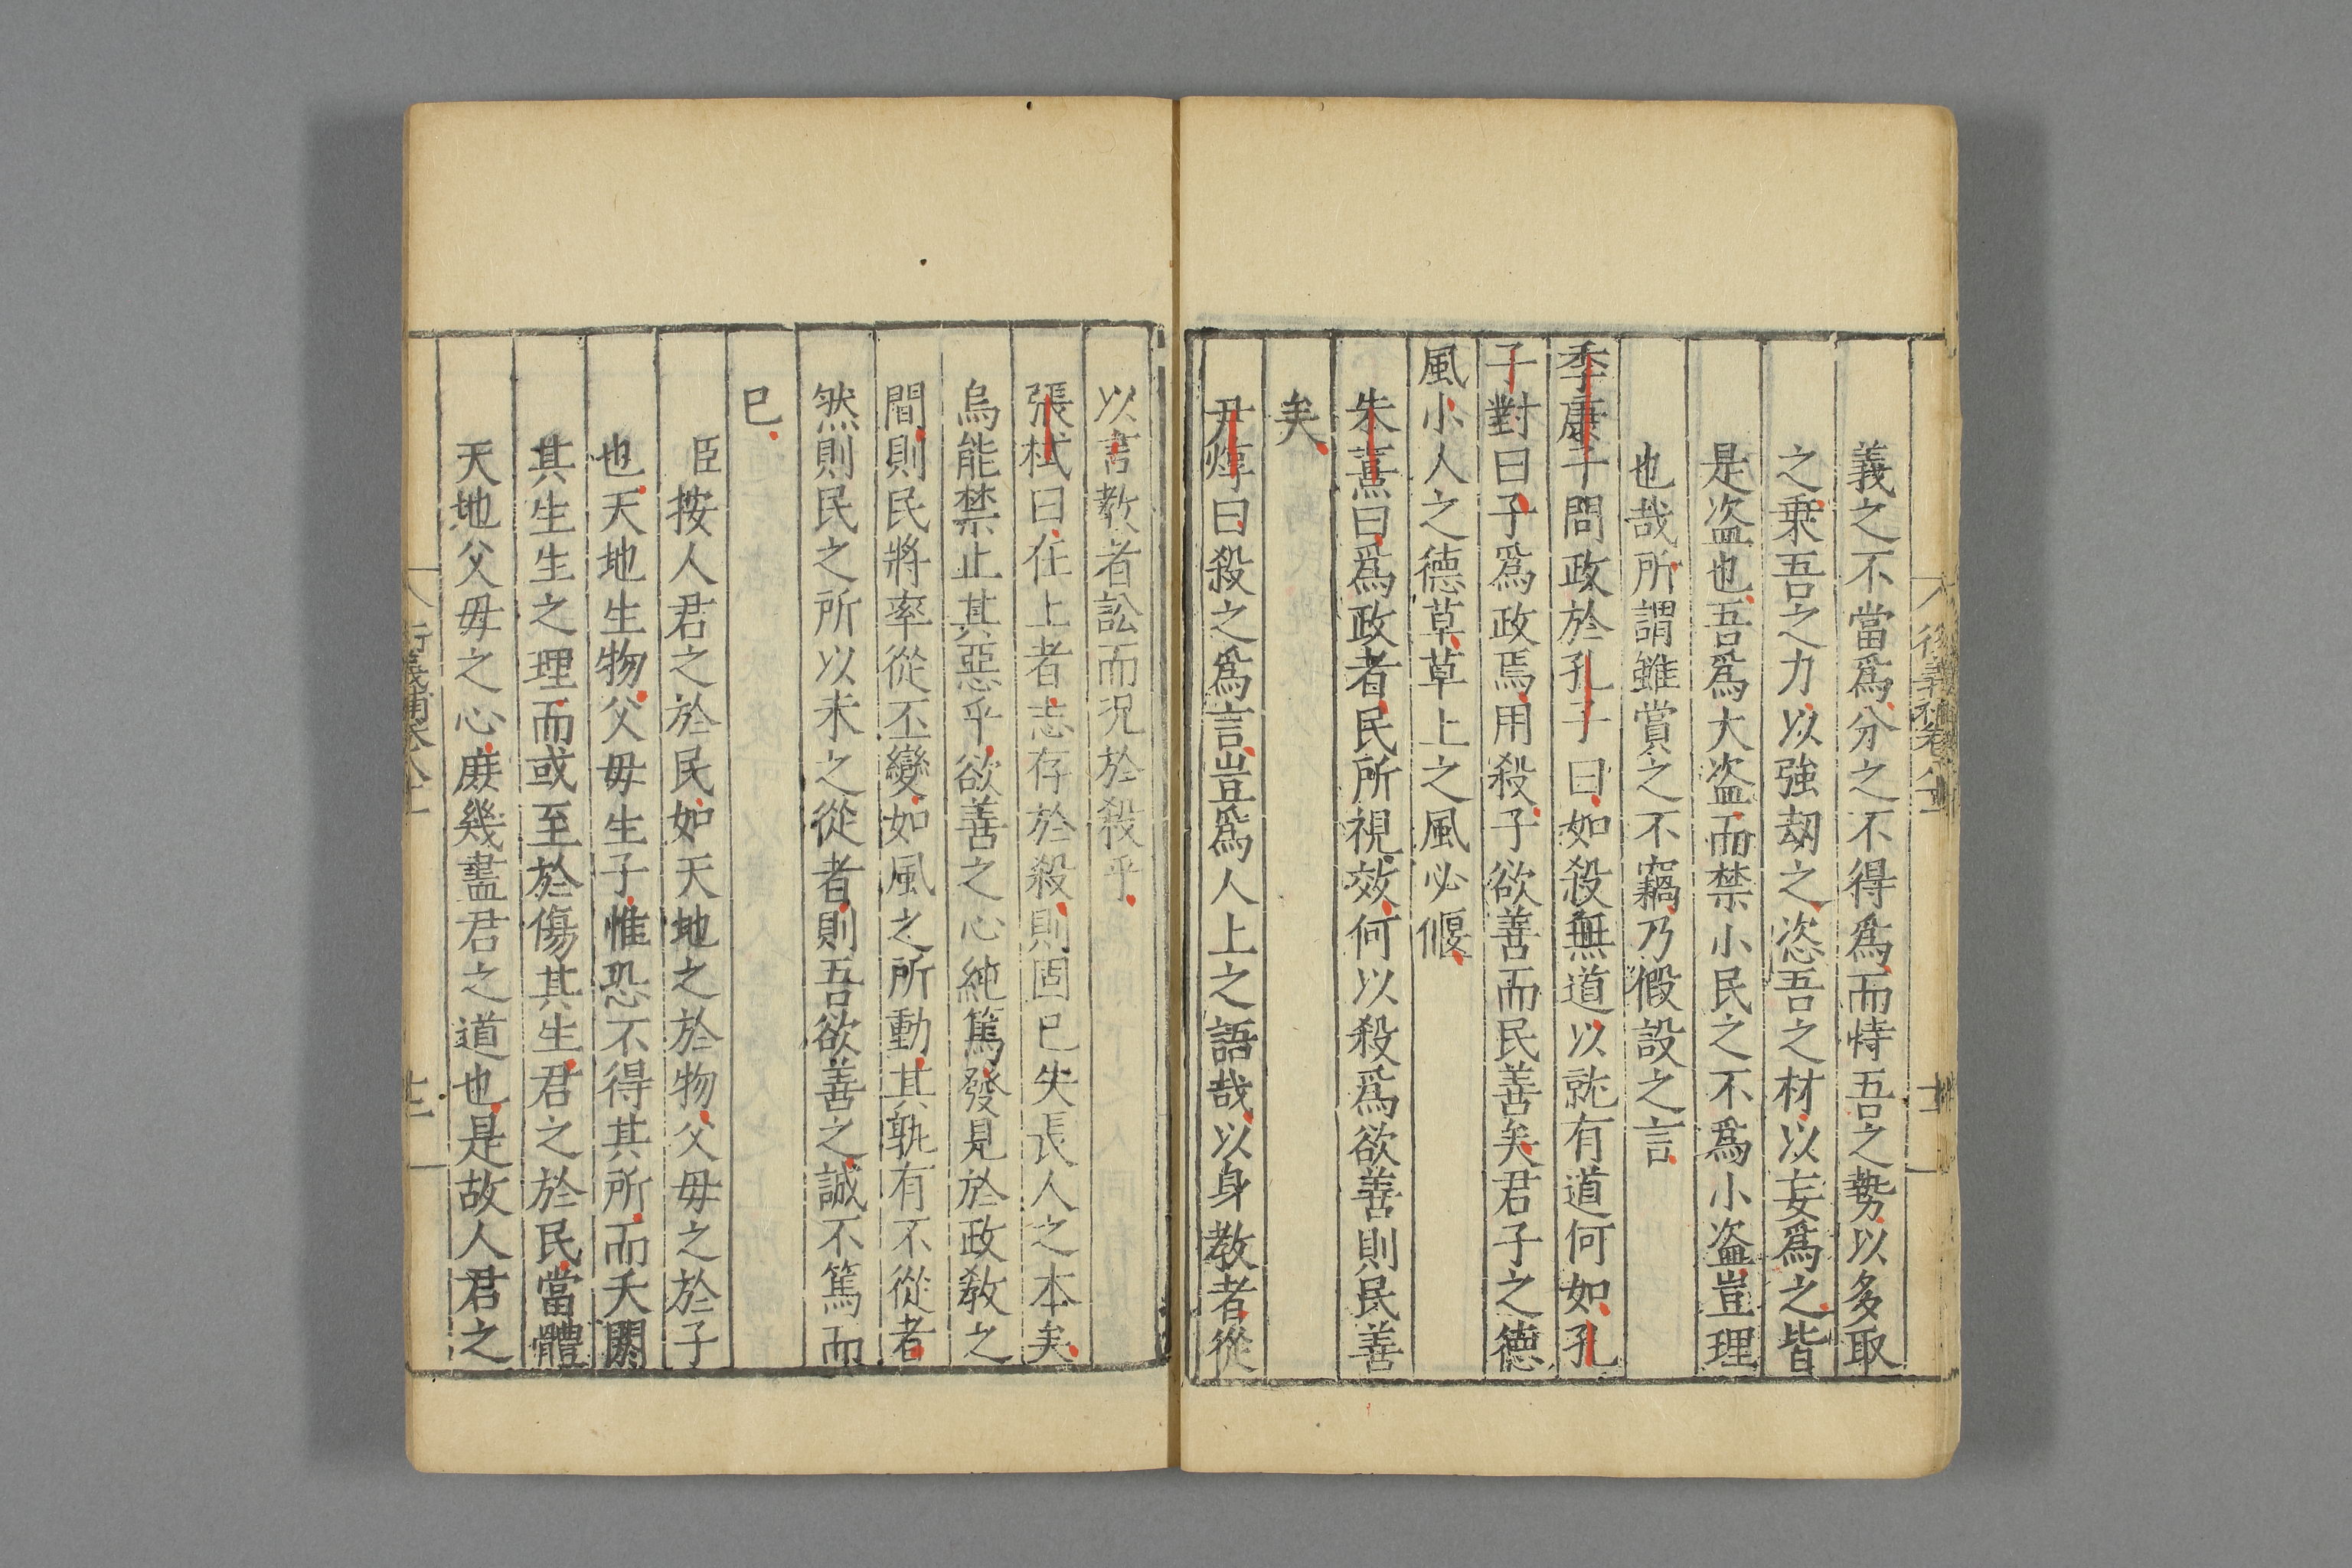 義之不當爲分之不得爲而恃吾之勢以多取
之乗吾之力以強刼之恣吾之材以妄爲之皆
是盗也吾爲大盗而禁小民之不爲小盗豈理
也哉所謂雖賞之不竊乃假設之言
季康子問政於孔子曰如殺無道以就有道何如孔
子對曰子爲政焉用殺子欲善而民善矣君子之德
風小人之德草草上之風必偃
朱熹曰爲政者民所視效何以殺爲欲善則民善
矣
尹焞曰殺之爲言豈爲人上之語哉以身教者從
以言教者訟而況於殺乎
張栻曰在上者志存於殺則固已失長人之本矣
烏能禁止其惡乎欲善之心純篤發見於政敎之
間則民將率從丕變如風之所動其孰有不從者
然則民之所以未之從者則吾欲善之誠不篤而
已
臣按人君之於民如天地之於物父毋之於子
也天地生物父毋生子惟恐不得其所而夭閼
其生生之理而或至於傷其生君之於民當體
天地父毋之心庶幾盡君之道也是故人君之